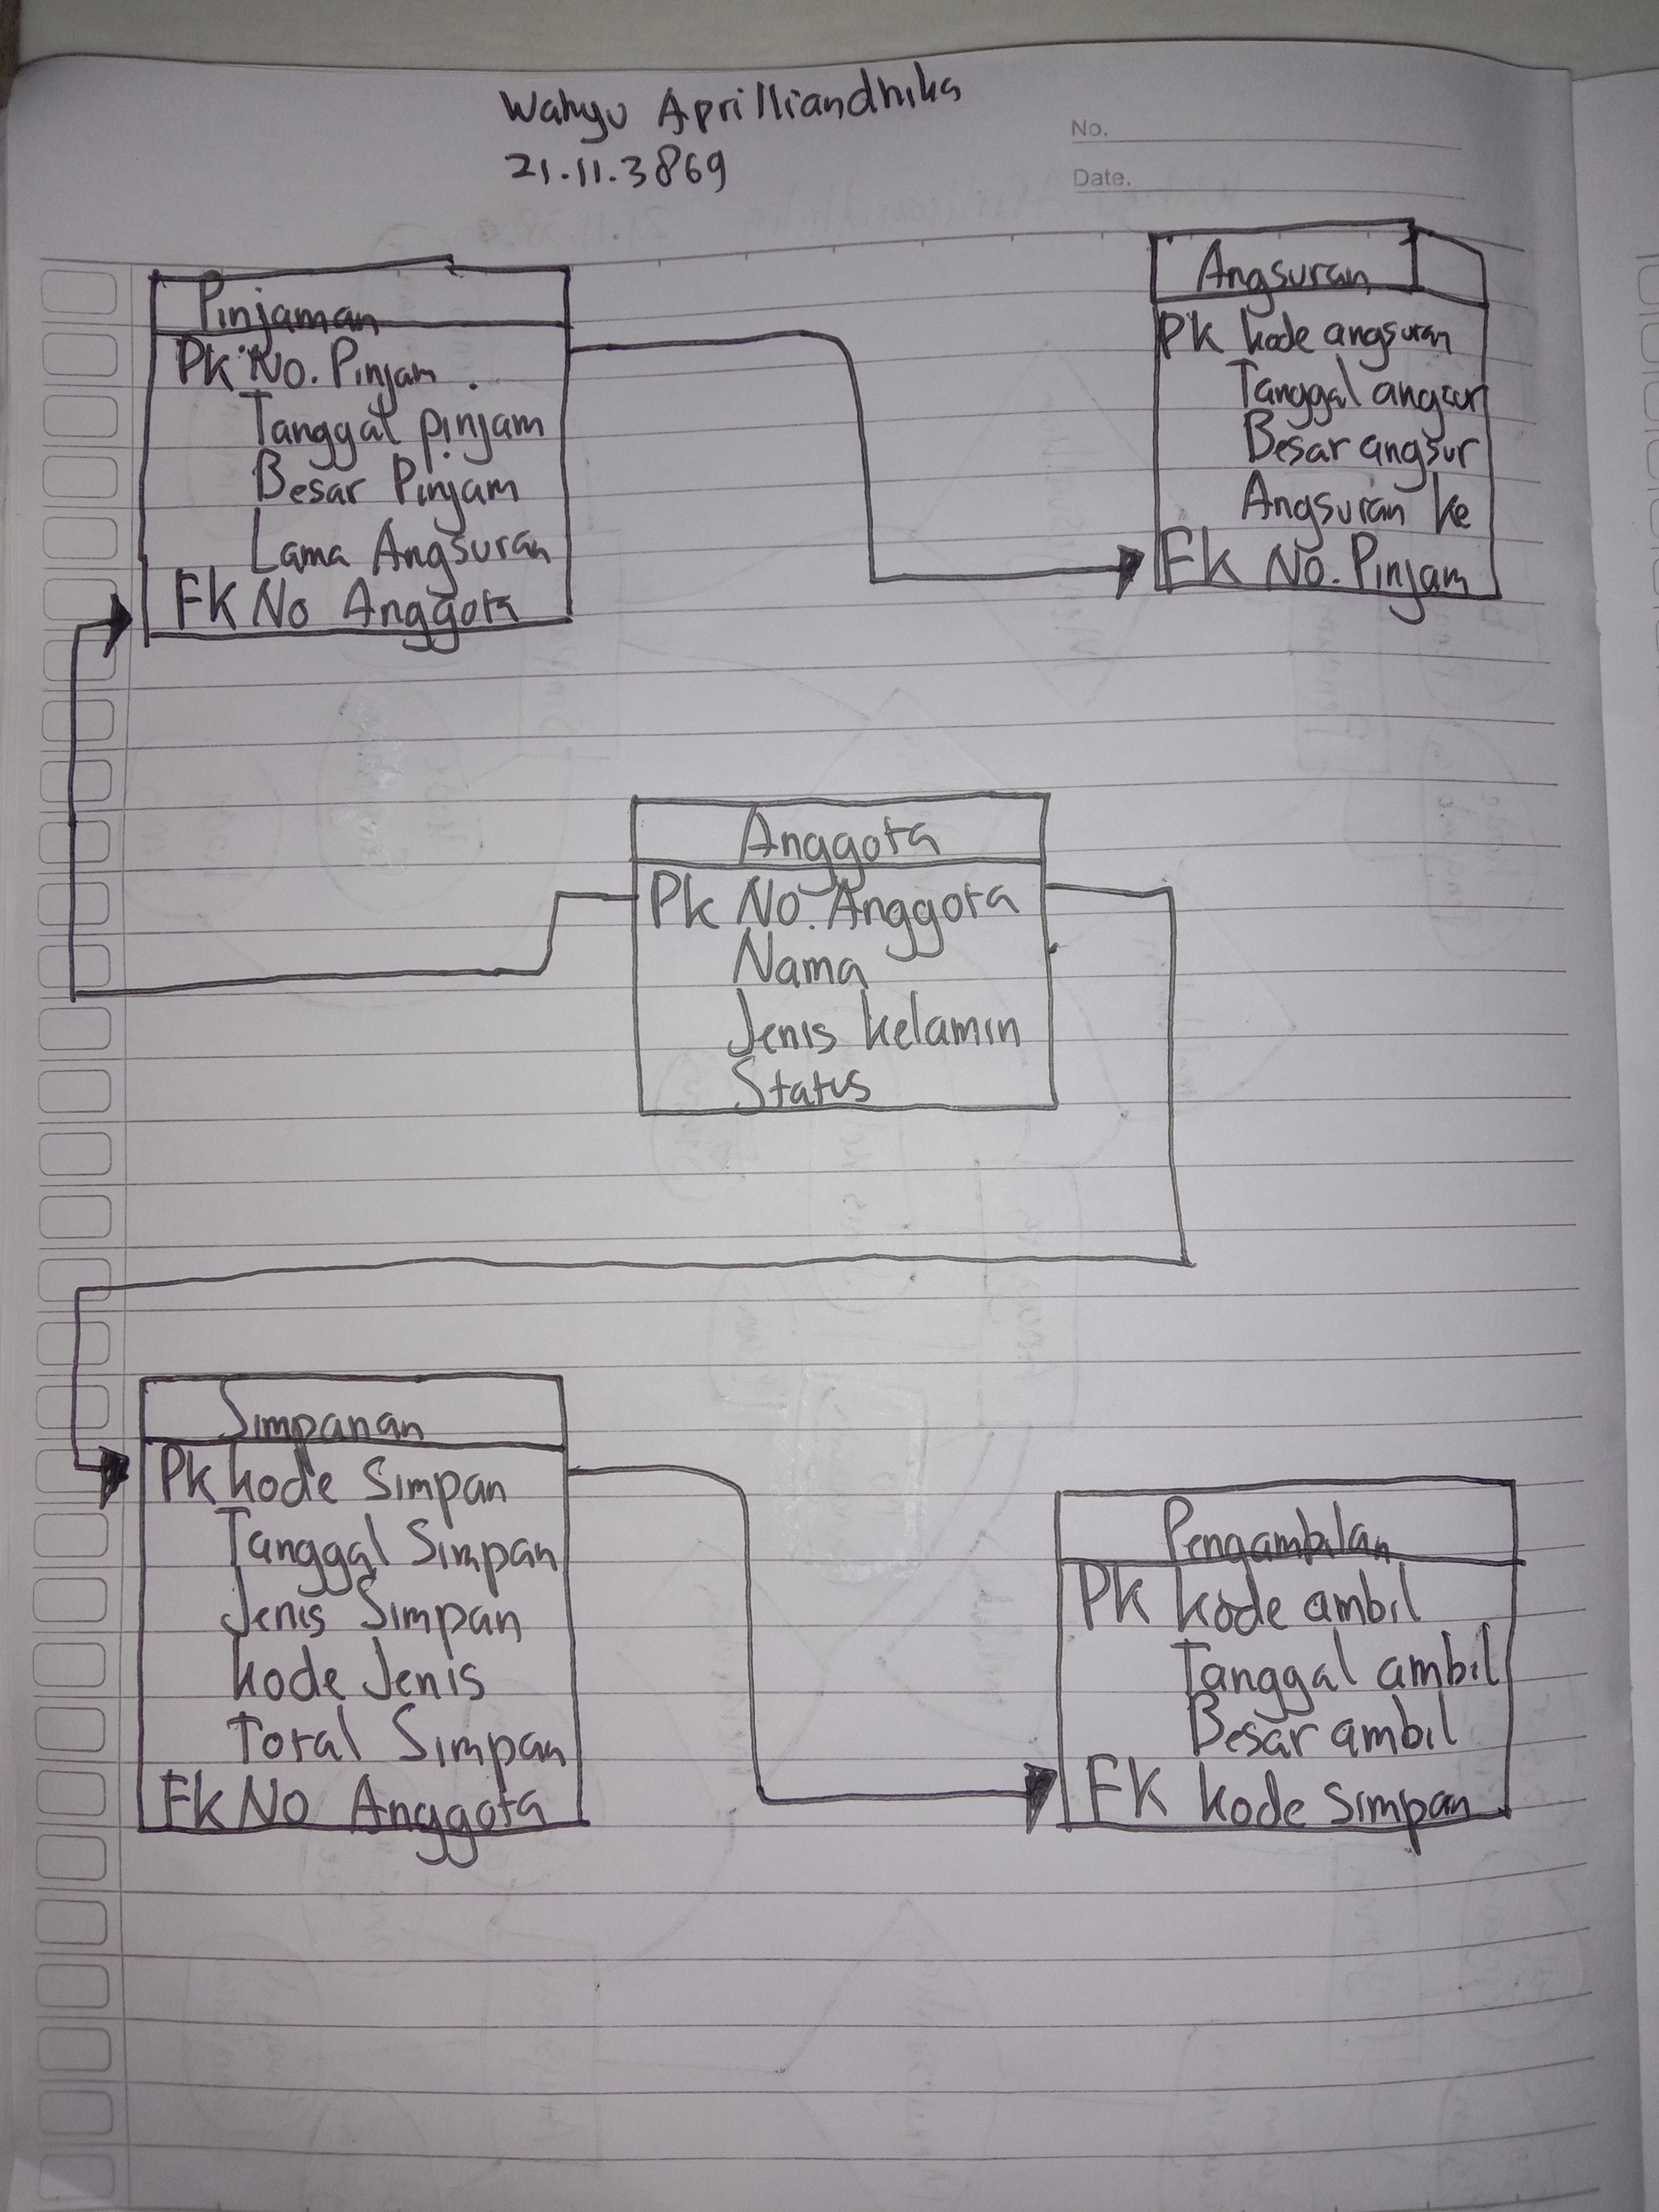 Wahyu Aprilliandhika
21.11.3869
No.
Date.
Pinjaman
Pk No. Pinjam
Tanggal pinjam
Besar Pinjam
Lama Angsuran
FK No Anggota
Angsuran
PK kode angsuran
Tanggal angsur
Besar angsur
Angsuran ke
FK No. Pinjam
Anggota
Pk No. Anggota
Nama
Jenis kelamin
Status
Simpanan
Pk kode Simpan
Tanggal Simpan
Jenis Simpan
kode Jenis
Total Simpan
Fk No Anggota
Pengambilan
PK kode ambil
Tanggal ambil
Besar ambil
FK kode simpan